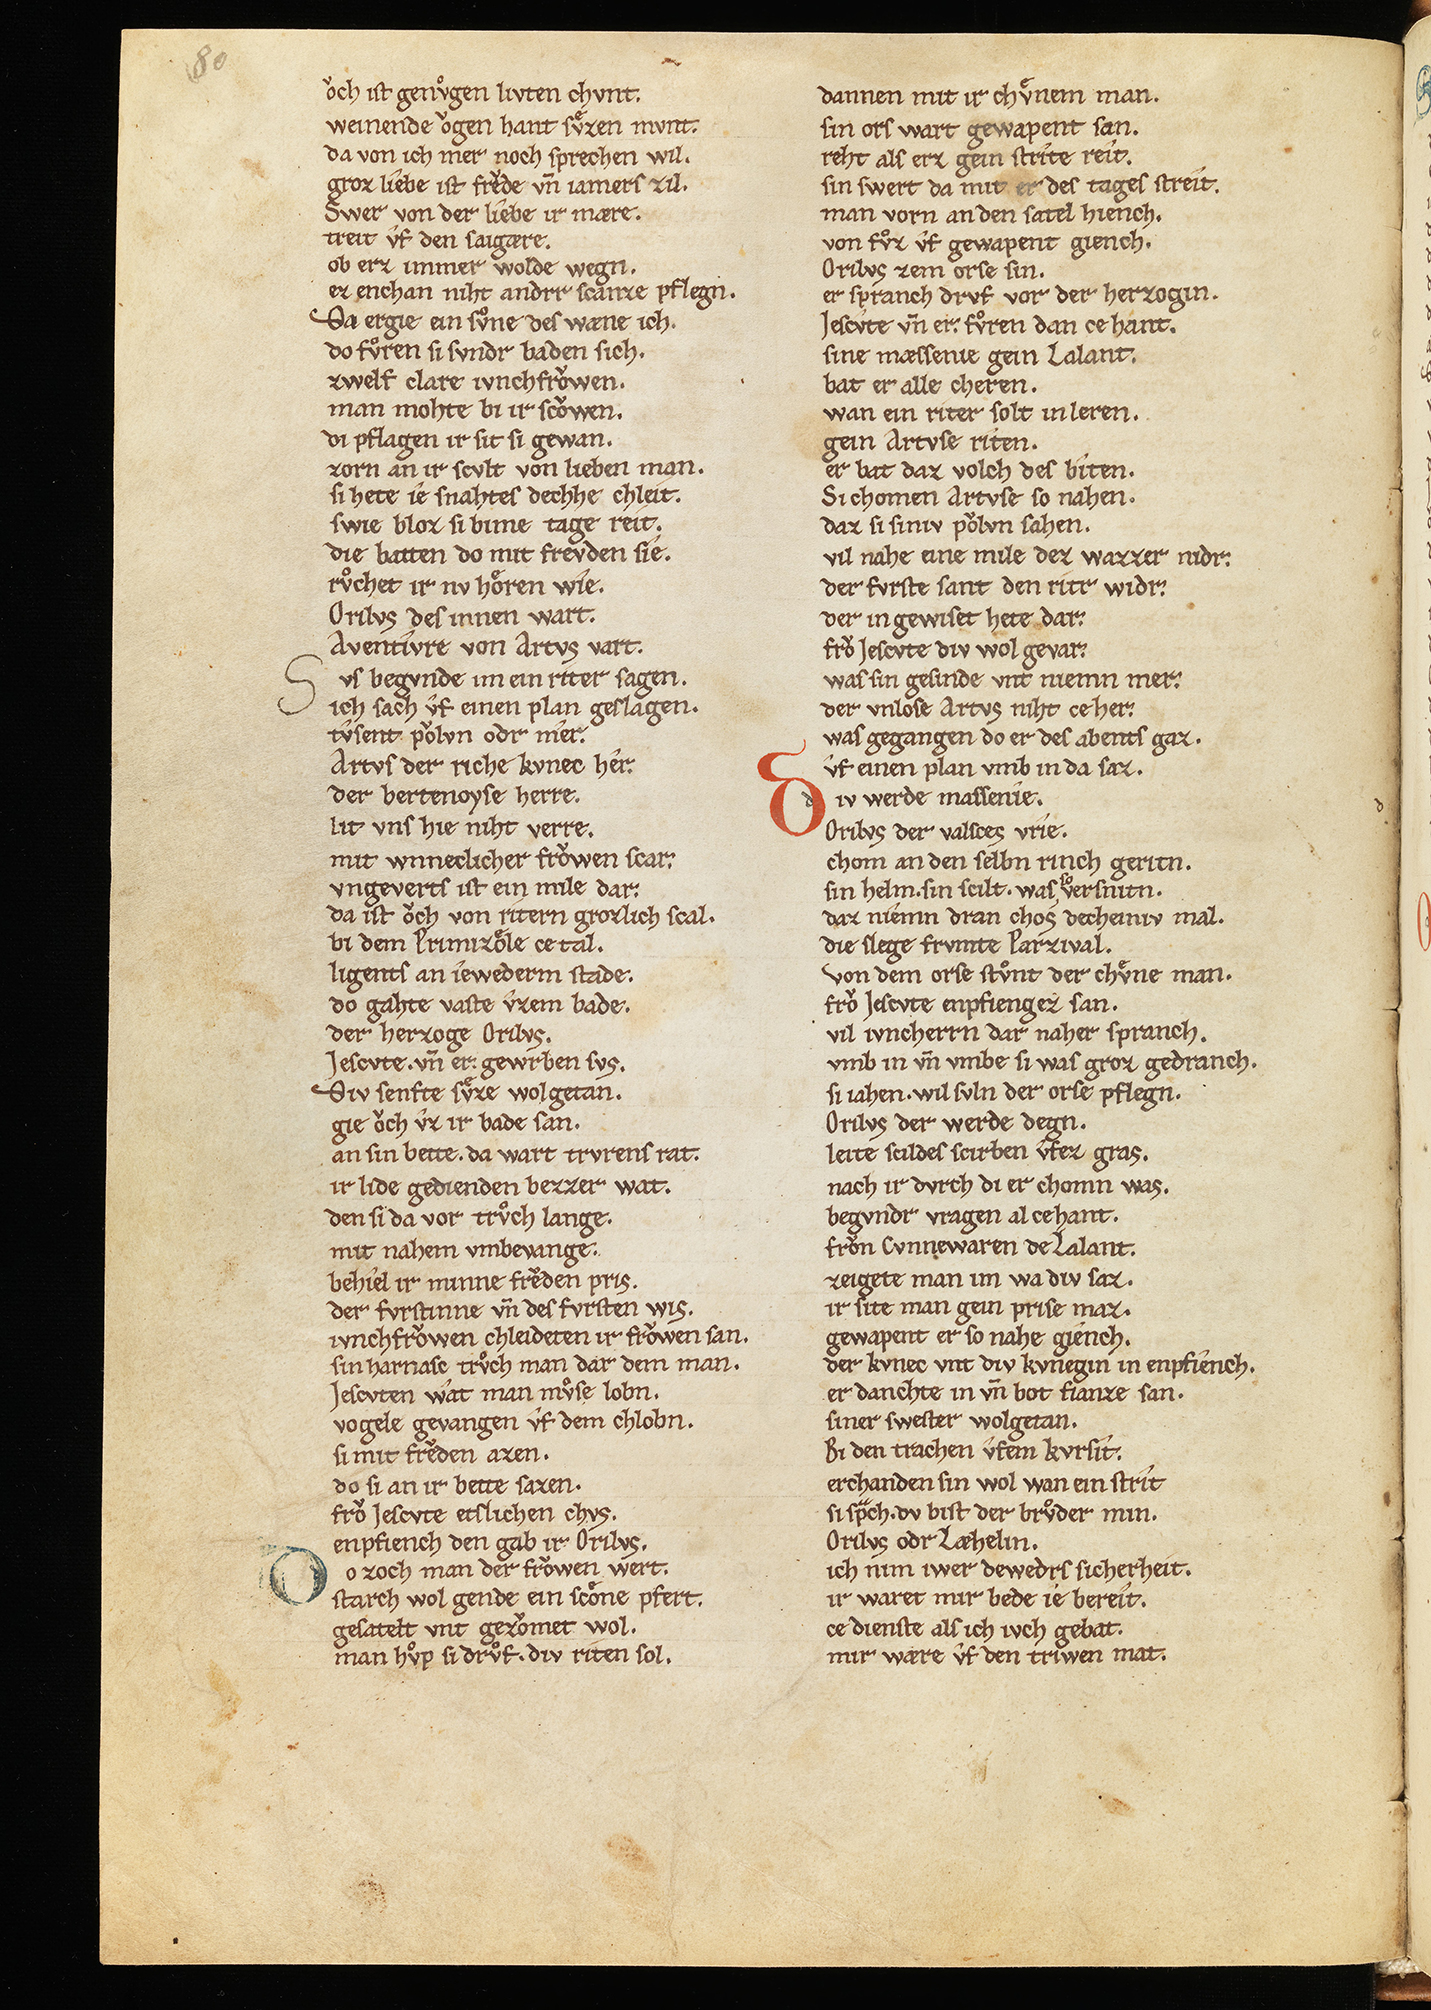 80
ǒch ist genv̊gen livten chvnt.
weinende ǒgen hant sv̊zen mvnt.
da von ich mer noch sprechen wil.
groz liebe ist frěde vn̄ iamers zil.
Swer von der liebe ir mære.
treit v̂f den saigære.
ob erz immer wolde wegn.
ez enchan niht andrr scanze pflegn.
Da ergie ein sv̊ne des wæne ich.
do fv̊ren si svndr baden sich.
zwelf clare ivnchfrǒwen.
man mohte bi ir scǒwen.
di pflagen ir sit si gewan.
zorn an ir scvlt von lieben man.
si hete ie snahtes dechhe chleit.
swie bloz si bime tage reit.
die batten do mit frevden sie.
rv̊chet ir nv hôren wie.
Orilvs des innen wart.
Aventivre von Artvs vart.
Svs begvnde im ein riter sagen.
ich sach v̂f einen plan geslagen.
tv̂sent pǒlvn odr mer.
Artvs der riche kvnec her.
der bertenoyse herre.
lit vns hie niht verre.
mit wnneclicher frǒwen scar.
vngeverts ist ein mile dar.
da ist ǒch von ritern grozlich scal.
bi dem Primizôle ce tal.
ligents an iewederm stade.
do gahte vaste v̂zem bade.
der herzoge Orilvs.
Jescvte. vn̄ er. gewrben svs.
Div senfte sv̊ze wolgetan.
gie ǒch v̂z ir bade san.
an sin bette. da wart trvrens rat.
ir lide gedienden bezzer wat.
den si da vor trv̊ch lange.
mit nahem vmbevange.
behiel ir minne frěden pris.
der fvrstinne vn̄ des fvrsten wis.
ivnchfrǒwen chleideten ir frǒwen san.
sin harnasc trv̊ch man dar dem man.
Jescvten wat man mv̊se lobn.
vogele gevangen v̂f dem chlobn.
si mit frěden azen.
do si an ir bette sazen.
frǒ Jescvte etslichen chvs.
enpfiench den gab ir Orilvs.
Do zoch man der frǒwen wert.
starch wol gende ein scône pfert.
gesatelt vnt gezǒmet wol.
man hv̊p si drv̊f. div riten sol.
dannen mit ir chv̊nem man.
sin ors wart gewapent san.
reht als erz gein strite reit.
sin swert da mit er des tages streit.
man vorn an den satel hiench.
von fv̊z v̂f gewapent giench.
Orilvs zem orse sin.
er spranch drvf vor der herzogin.
Jescvte vn̄ er. fv̊ren dan ce hant.
sine mæssenie gein Lalant.
bat er alle cheren.
wan ein riter solt in leren.
gein Artvse riten.
er bat daz volch des biten.
Si chomen Artvse so nahen.
daz si siniv pǒlvn sahen.
vil nahe eine mile dez wazzer nidr.
der fvrste sant den ritr widr.
der in gewiset hete dar.
frǒ Jescvte div wol gevar.
was sin gesinde vnt niemn mer.
der vnlose Artvs niht ce her.
was gegangen do er des abents gaz.
v̂f einen plan vmb in da saz.
Div werde massenie.
Orilvs der valsces vrie.
chom an den selbn rinch geritn.
sin helm. sin scilt. was so versnitn.
daz niemn dran chos decheiniv mal.
die slege frvmte Parzival.
von dem orse stv̊nt der chv̊ne man.
frǒ Jescvte enpfiengez san.
vil ivncherrn dar naher spranch.
vmb in vn̄ vmbe si was groz gedranch.
si iahen. wil svln der orse pflegn.
Orilvs der werde degn.
leite scildes scirben v̂fez gras.
nach ir dvrch di er chomn was.
begvndr vragen al cehant.
frǒn Cvnnewaren de Lalant.
zeigete man im wa div saz.
ir site man gein prise maz.
gewapent er so nahe giench.
der kvnec vnt div kvnegin in enpfiench.
er danchte in vn̄ bot fianze san.
siner swester wolgetan.
Bi den trachen v̂fem kvrsit.
erchanden sin wol wan ein strit
si sp̄ch. dv bist der brv̊der min.
Orilvs odr Læhelin.
ich nim iwer dewedrs sicherheit.
ir waret mir bede ie bereit.
ce dienste als ich ivch gebat.
mir wære v̂f den triwen mat.